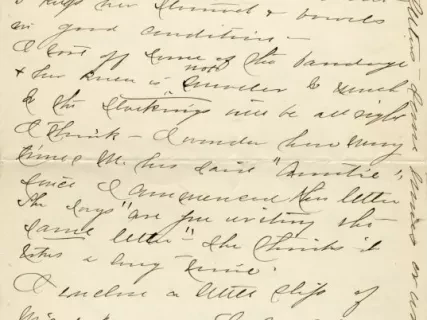 her stomach & bowels
in good condition —
I tore off some of the bandage
& her knee is not swollen so much
& the stockings will be all right
I think — I wonder how many
times M. has said "Auntie",
since I commenced this letter
She says "are you writing the
same letter" — She thinks it
takes a long time.
I enclose a little slip of